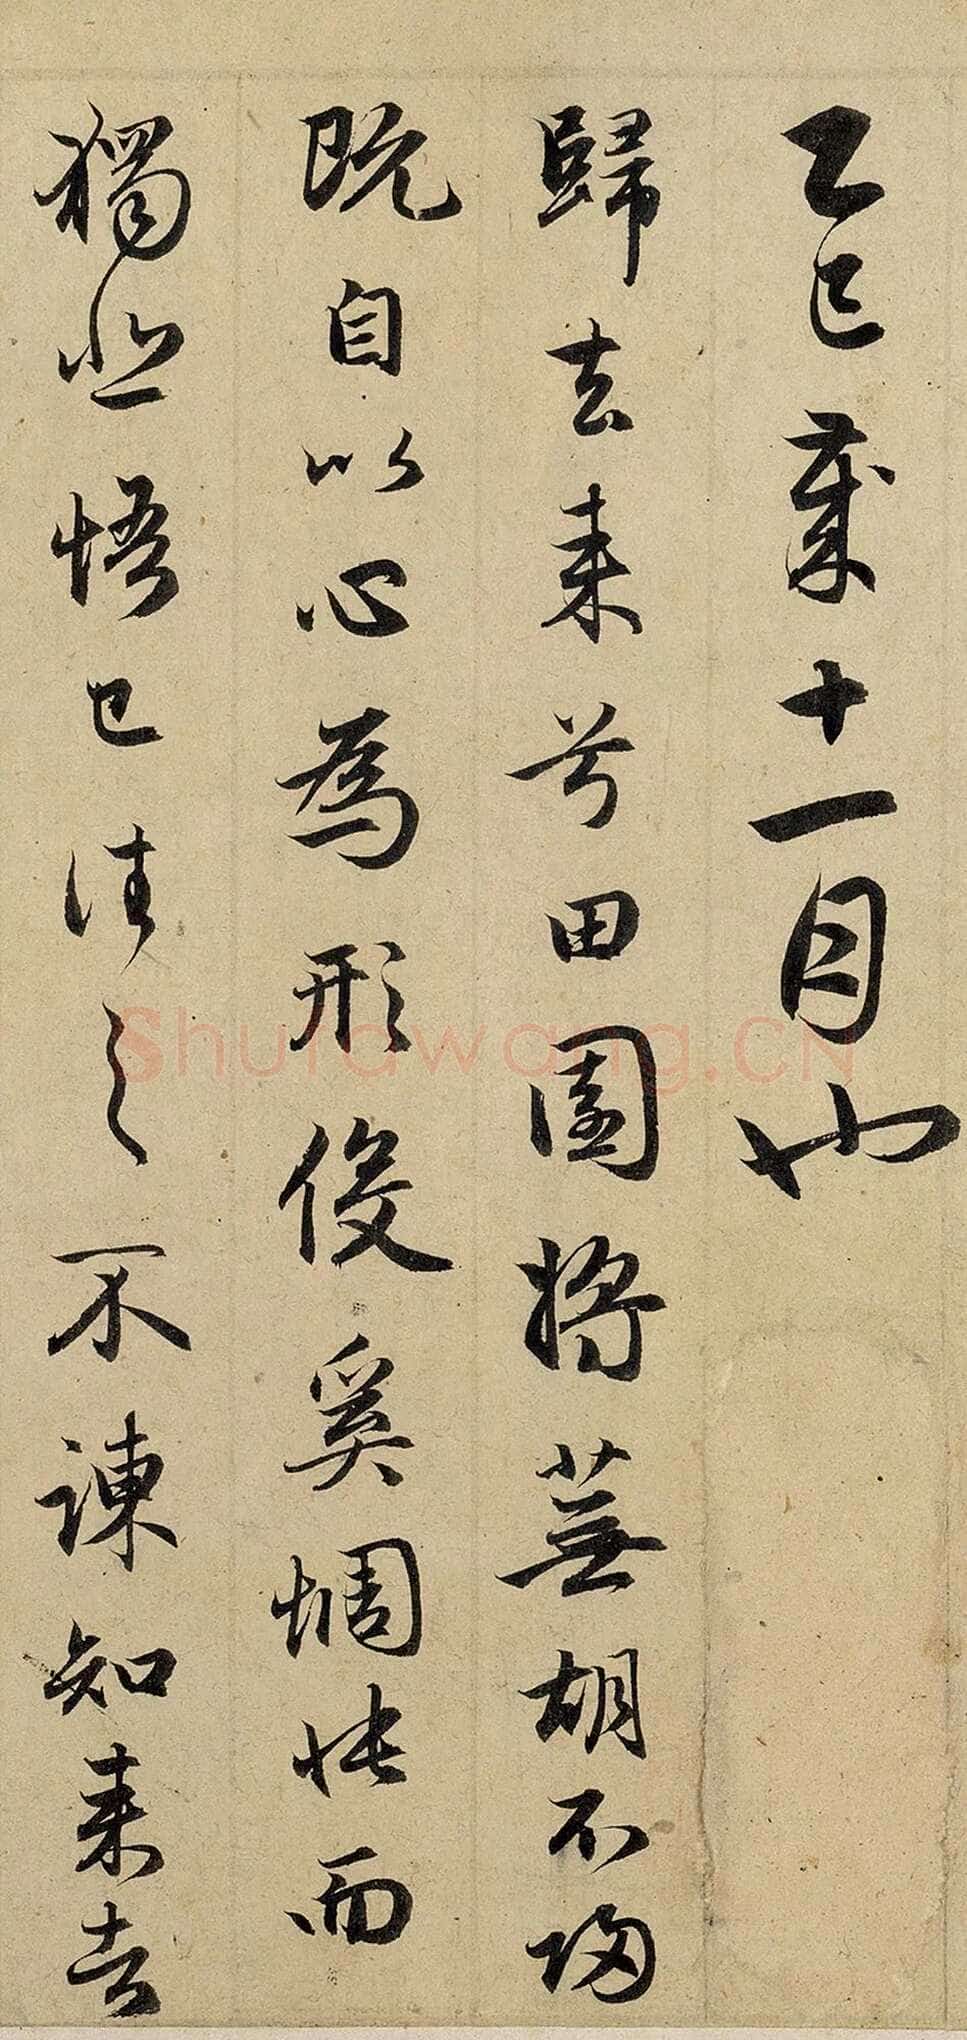 乙巳歲十一月也
歸去来兮田園将蕪胡不歸
既自以心為形役奚惆悵而
獨悲悟已往之不諫知来者
Shufawang.CN